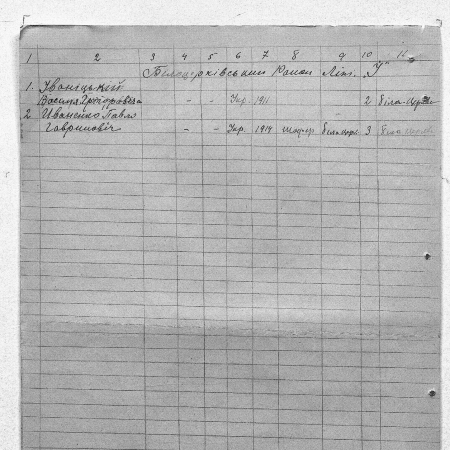 1 2 3 4 5 6 7 8 9 10 11
Білоцерківський Район Літ. "І"
1. Іваніцький
Василь Григорович - - Укр. 1911 2 Біла-Церква
2 Иваненко Павло
Гаврилович - - Укр. 1914 шофер 3 Біла